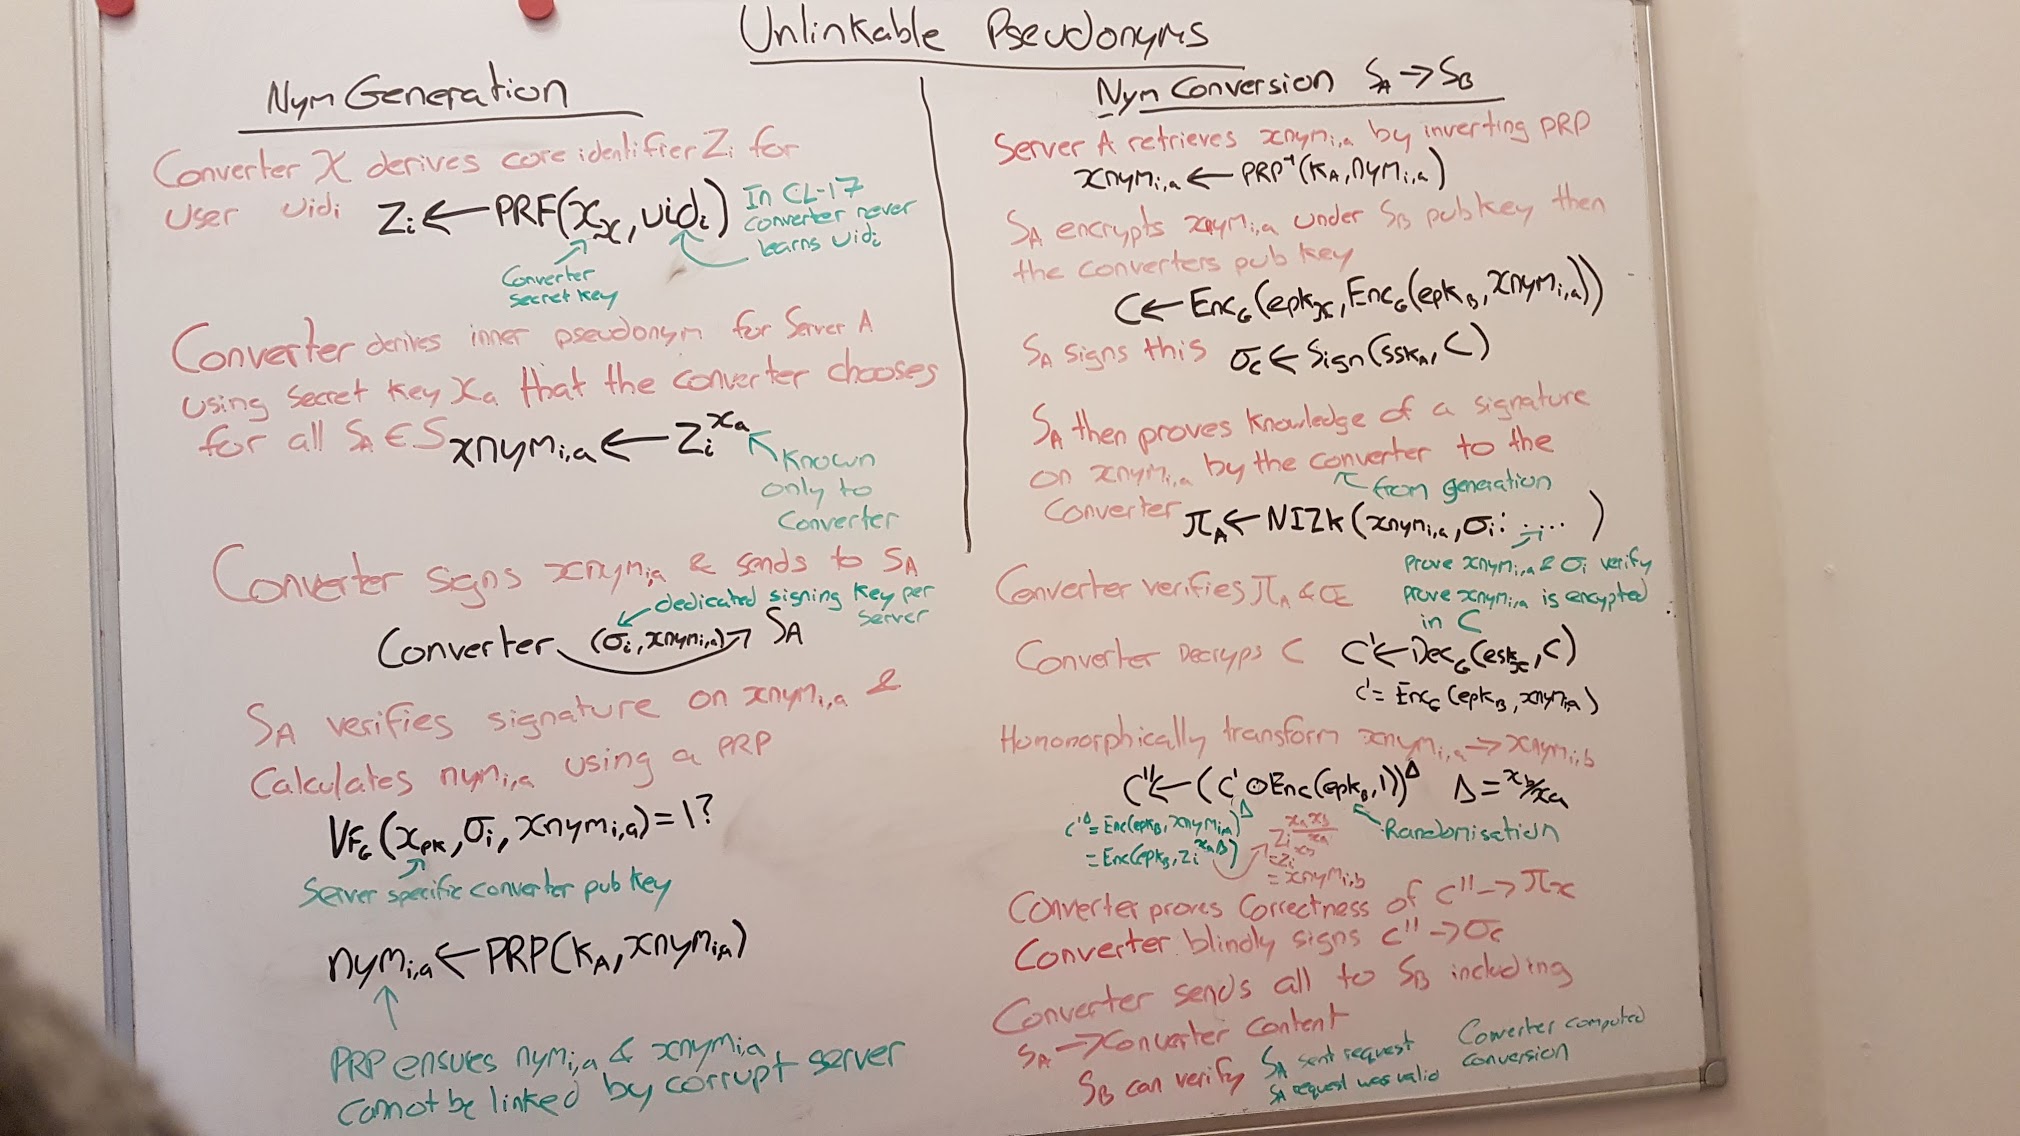 Unlinkable Pseudonyms
Nym Generation
Converter X derives core identifier Zi for
user uidi
Zi ← PRF(x𝓍, uidi)
In CL-17
converter never
learns uidi
Converter
secret key
Converter derives inner pseudonym for Server A
using secret key Xa that the converter chooses
for all SA ∈ S
xnymi,a ← Zi^xa
Known
only to
Converter
Converter signs xnymi,a & sends to SA
dedicated signing key per
server
Converter (σi, xnymi,a) → SA
SA verifies signature on xnymi,a &
Calculates nymi,a using a PRP
VfG(xpk, σi, xnymi,a) = 1?
Server specific converter pub key
nymi,a ← PRP(kA, xnymi,a)
PRP ensures nymi,a & xnymi,a
cannot be linked by corrupt server
Nym Conversion SA → SB
Server A retrieves xnymi,a by inverting PRP
xnymi,a ← PRP⁻¹(kA, nymi,a)
SA encrypts xnymi,a under SB pub key then
the converters pub key
C ← EncG(epkx, EncG(epkB, xnymi,a))
SA signs this σc ← Sign(sskA, C)
SA then proves knowledge of a signature
on xnymi,a by the converter to the
from generation
Converter πA ← NIZK(xnymi,a, σi: .....)
prove xnymi,a & σi verify
prove xnymi,a is encypted
in C
Converter verifies πA & σc
Converter Decryps C C' ← DecG(eskx, C)
C' = EncG(epkB, xnymi,a)
Homomorphically transform xnymi,a → xnymi,b
C'' ← (C' ⊙ Enc(epkB, 1))^Δ Δ = xb/xa
Randomisation
C'^Δ = Enc(epkB, xnymi,a)^Δ
= Enc(epkB, Zi^xaΔ)
Zi^xa xb/xa
= Zi^xb
= xnymi,b
Converter proves Correctness of C'' → πx
Converter blindly signs C'' → σc
Converter sends all to SB including
SA → Converter content
SB can verify
SA sent request
SA request was valid
Converter computed
conversion